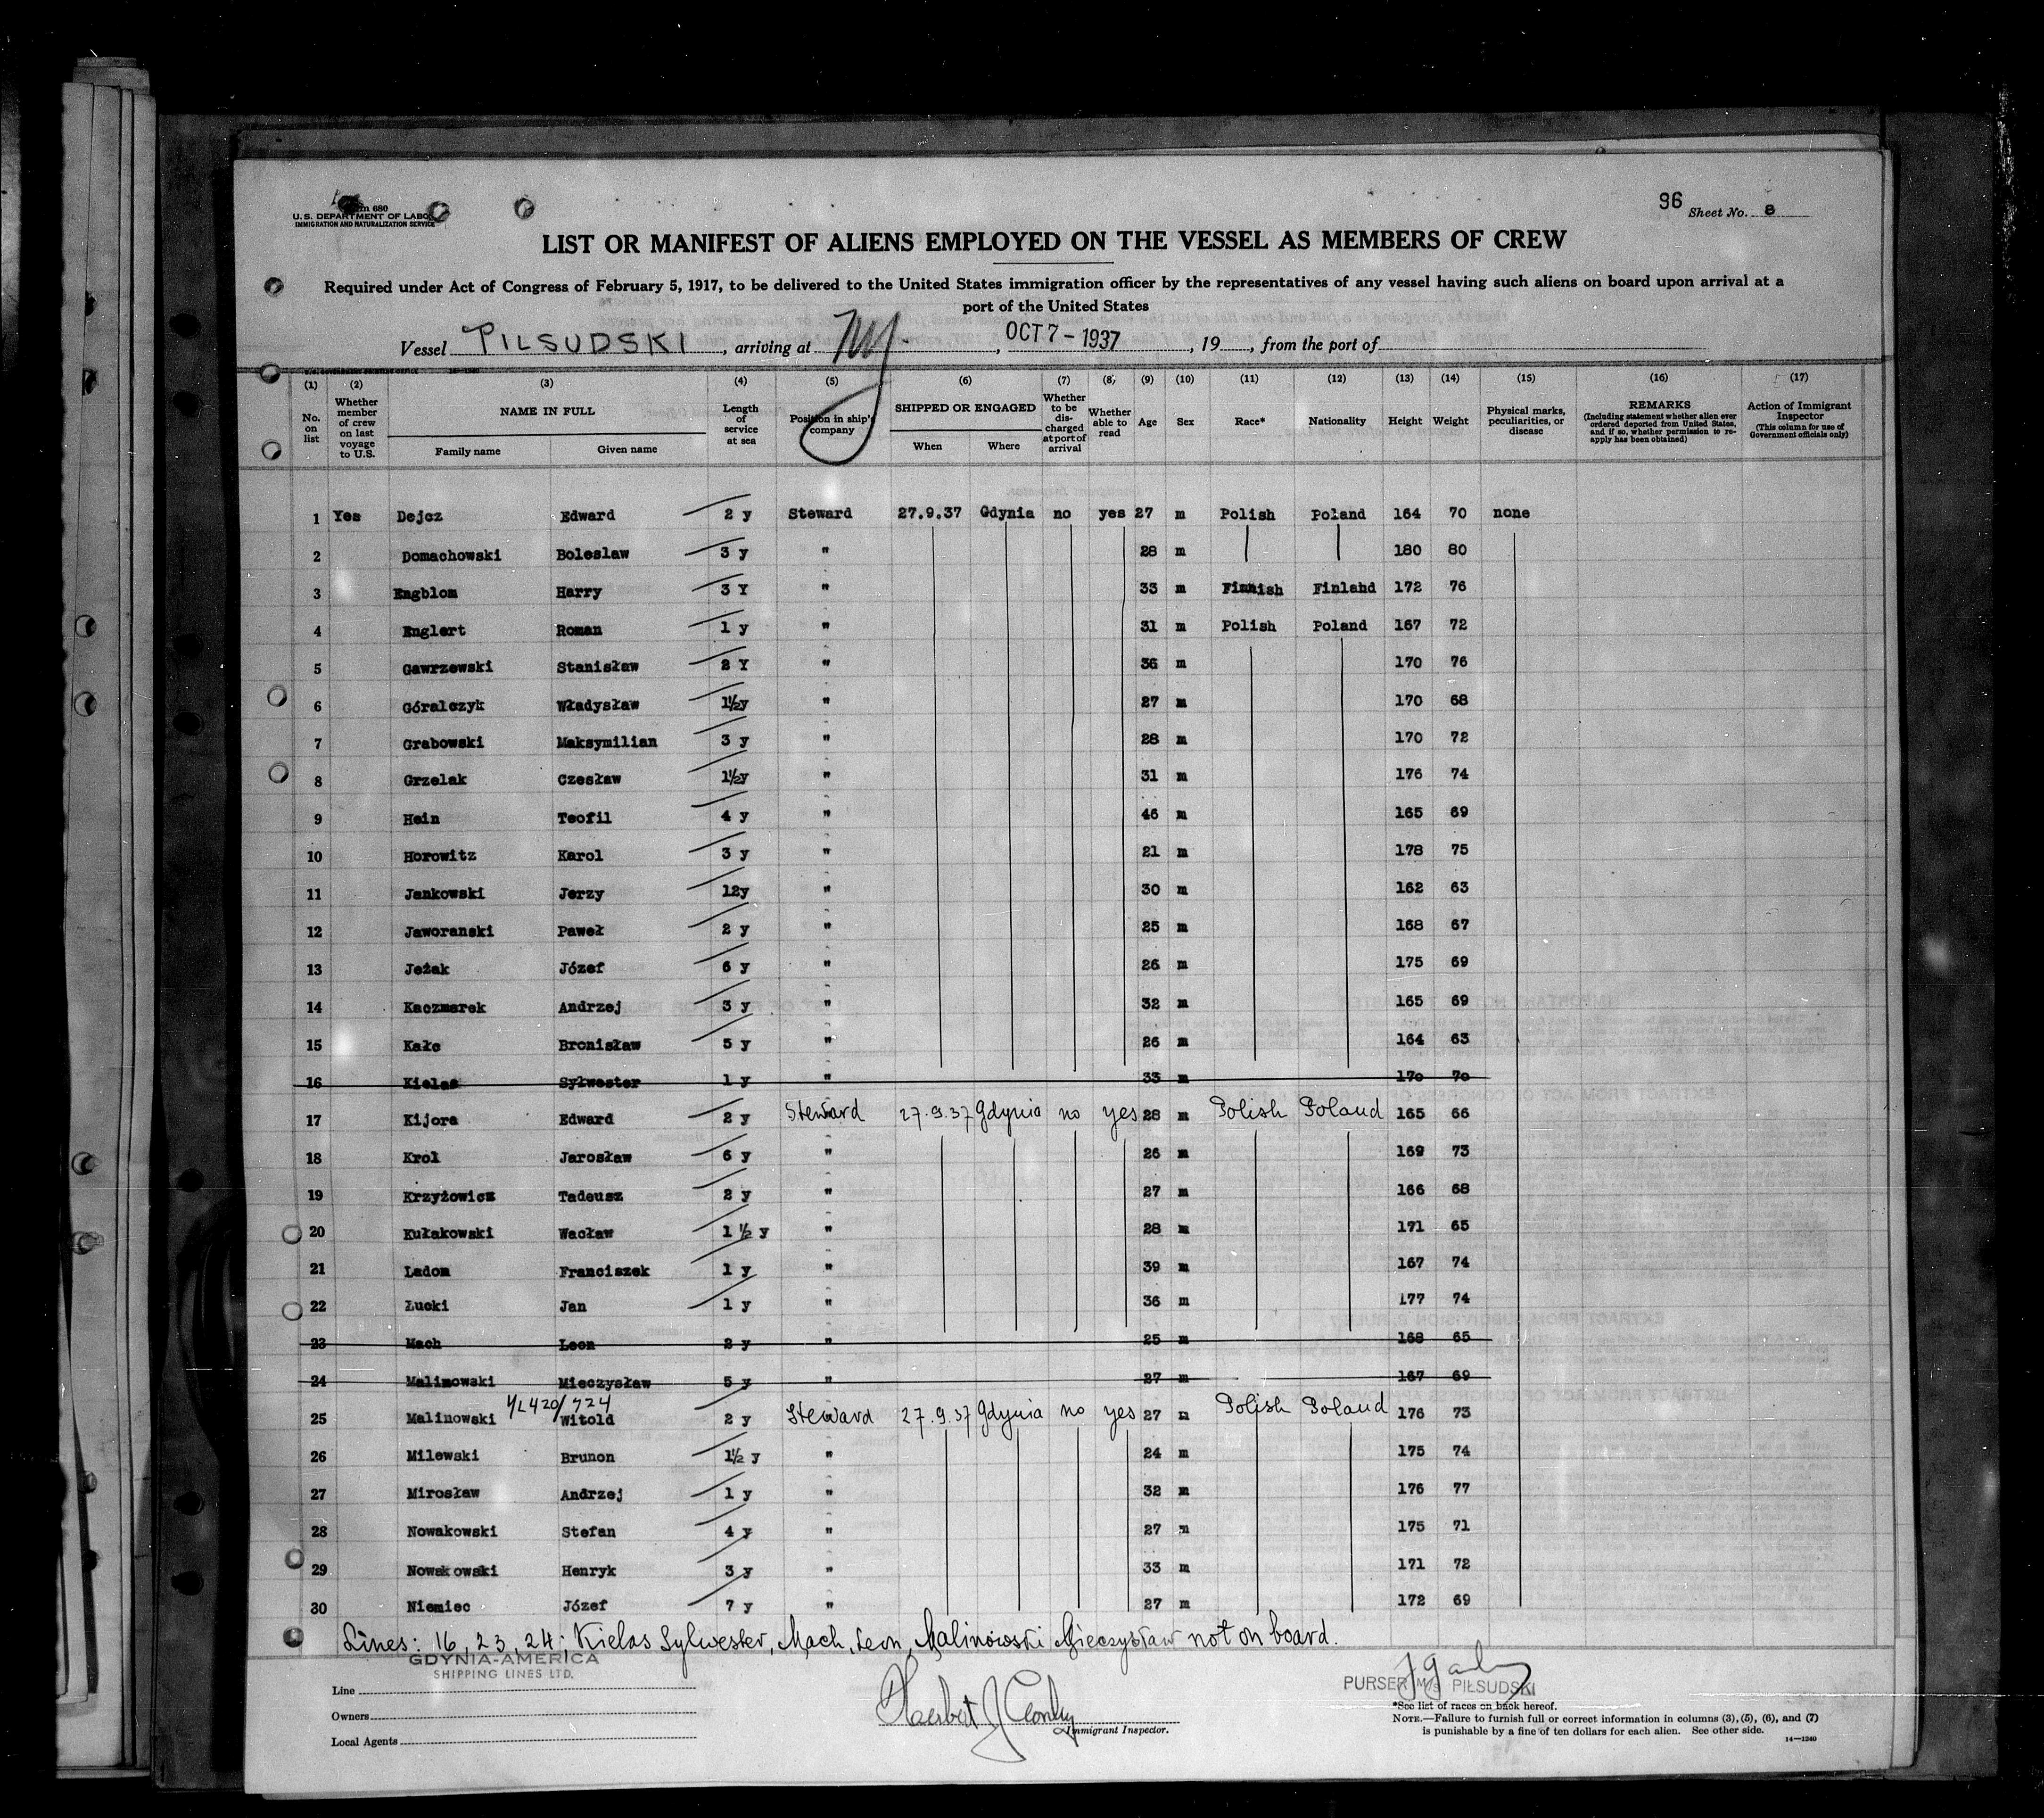 Form 680
U.S. DEPARTMENT OF LABOR
IMMIGRATION AND NATURALIZATION SERVICE
96 Sheet No. 8
LIST OR MANIFEST OF ALIENS EMPLOYED ON THE VESSEL AS MEMBERS OF CREW
Required under Act of Congress of February 5, 1917, to be delivered to the United States immigration officer by the representatives of any vessel having such aliens on board upon arrival at a
port of the United States
Vessel PILSUDSKI, arriving at NY., OCT 7 - 1937, 19, from the port of
(1) (2) (3) (4) (5) (6) (7) (8) (9) (10) (11) (12) (13) (14) (15) (16) (17)
No. on list Whether member of crew on last voyage to U.S. NAME IN FULL Family name Given name Length of service at sea Position in ship's company SHIPPED OR ENGAGED When Where Whether to be discharged at port of arrival Whether able to read Age Sex Race* Nationality Height Weight Physical marks, peculiarities, or disease REMARKS (Including statement whether alien ever ordered deported from United States, and if so, whether permission to reapply has been obtained) Action of Immigrant Inspector (This column for use of Government officials only)
1 Yes Dejcz Edward 2 y Steward 27.9.37 Gdynia no yes 27 m Polish Poland 164 70 none
2 Domachowski Boleslaw 3 y " 28 m 180 80
3 Engblom Harry 3 Y " 33 m Finnish Finland 172 76
4 Englert Roman 1 y " 31 m Polish Poland 167 72
5 Gawrzewski Stanisław 2 Y " 36 m 170 76
6 Góralczyk Władysław 1½y " 27 m 170 68
7 Grabowski Maksymilian 3 y " 28 m 170 72
8 Grzelak Czesław 1½y " 31 m 176 74
9 Hein Teofil 4 y " 46 m 165 69
10 Horowitz Karol 3 y " 21 m 178 75
11 Jankowski Jerzy 12y " 30 m 162 63
12 Jaworanski Paweł 2 y " 25 m 168 67
13 Jeżak Józef 6 y " 26 m 175 69
14 Kaczmarek Andrzej 3 y " 32 m 165 69
15 Kałc Bronisław 5 y " 26 m 164 63
16 Kielas Sylwester 1 y " 33 m 170 70
17 Kijora Edward 2 y Steward 27.9.37 Gdynia no yes 28 m Polish Poland 165 66
18 Krol Jarosław 6 y " 26 m 169 73
19 Krzyżowicz Tadeusz 2 y " 27 m 166 68
20 Kułakowski Wacław 1 ½ y " 28 m 171 65
21 Ladom Franciszek 1 y " 39 m 167 74
22 Łucki Jan 1 y " 36 m 177 74
23 Mach Leon 2 y " 25 m 168 65
24 Malinowski Mieczysław 5 y " 27 m 167 69
25 Malinowski Witold 2 y Steward 27.9.37 Gdynia no yes 27 m Polish Poland 176 73
26 Milewski Brunon 1½ y " 24 m 175 74
27 Mirosław Andrzej 1 y " 32 m 176 77
28 Nowakowski Stefan 4 y " 27 m 175 71
29 Nowakowski Henryk 3 y " 33 m 171 72
30 Niemiec Józef 7 y " 27 m 172 69
Lines: 16, 23, 24: Kielas Sylwester, Mach Leon, Malinowski Mieczysław not on board.
GDYNIA-AMERICA
SHIPPING LINES LTD.
Line
Owners
Local Agents
Immigrant Inspector.
PURSER M/S PIŁSUDSKI
*See list of races on back hereof.
NOTE.—Failure to furnish full or correct information in columns (3), (5), (6), and (7)
is punishable by a fine of ten dollars for each alien. See other side.
14—1240